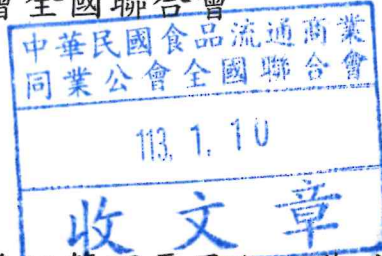 會全國聯合會
中華民國食品流通商業
同業公會全國聯合會
113. 1. 10
收文章